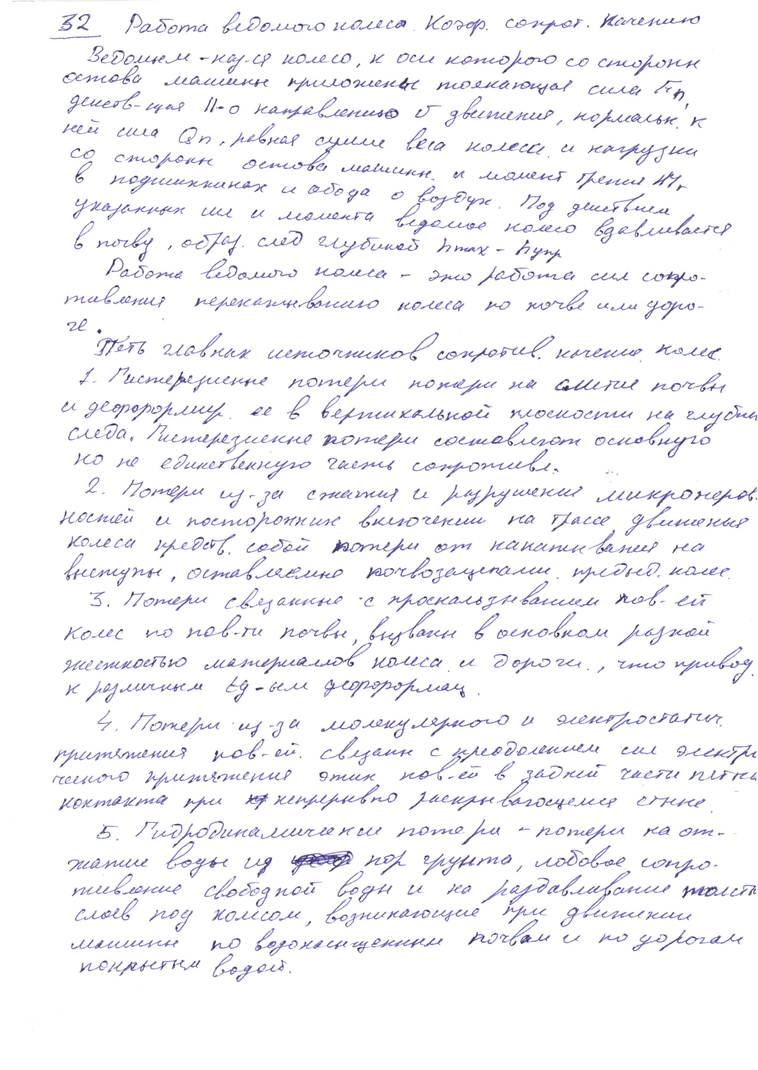 32 Работа ведомого колеса. Коэф. сопрот. качению
Ведомым - наз-ся колесо, к оси которого со стороны
остова машины приложены толкающая сила Fп,
действ-щая II-о направлению V движения, нормальн. к
ней сила Qп, равная сумме веса колеса и нагрузки
со стороны остова машины и момент трения Mг
в подшипниках и обода о воздух. Под действием
указанных сил и момента ведомое колесо вдавливается
в почву, образ. след глубиной hmax - hупр
Работа ведомого колеса - это работа сил сопро-
тивления перекатыванию колеса по почве или доро-
ге.
Пять главных источников сопротив. качению колес.
1. Гистерезисные потери потери на смятие почвы
и деформир. ее в вертикальной плоскости на глубин
следа. Гистерезисные потери составляют основную
но не единственную часть сопротивл.
2. Потери из-за сжатия и разрушений микронеров-
ностей и посторонних включений на трассе движения
колеса предств. собой потери от накатывания на
выступы, оставляемые почвозацепами предыд. колес.
3. Потери связанные с проскальзыванием пов-ей
колес по пов-ти почвы, вызваны в основном разной
жесткостью материалов колеса и дороги, что привод.
к различным tg-ым деформац.
4. Потери из-за молекулярного и электростатич.
притяжения пов-ей. связаны с преодолением сил электри
ческого притяжения этих пов-ей в задней части пятна
контакта при непрерывно раскрывающемся стыке.
5. Гидродинамические потери - потери на от-
жатие воды из пор грунта, лобовое сопро-
тивление свободной воды и на раздавливание толсты
слоев под колесом, возникающие при движении
машины по водонасыщенным почвам и по дорогам
покрытым водой.